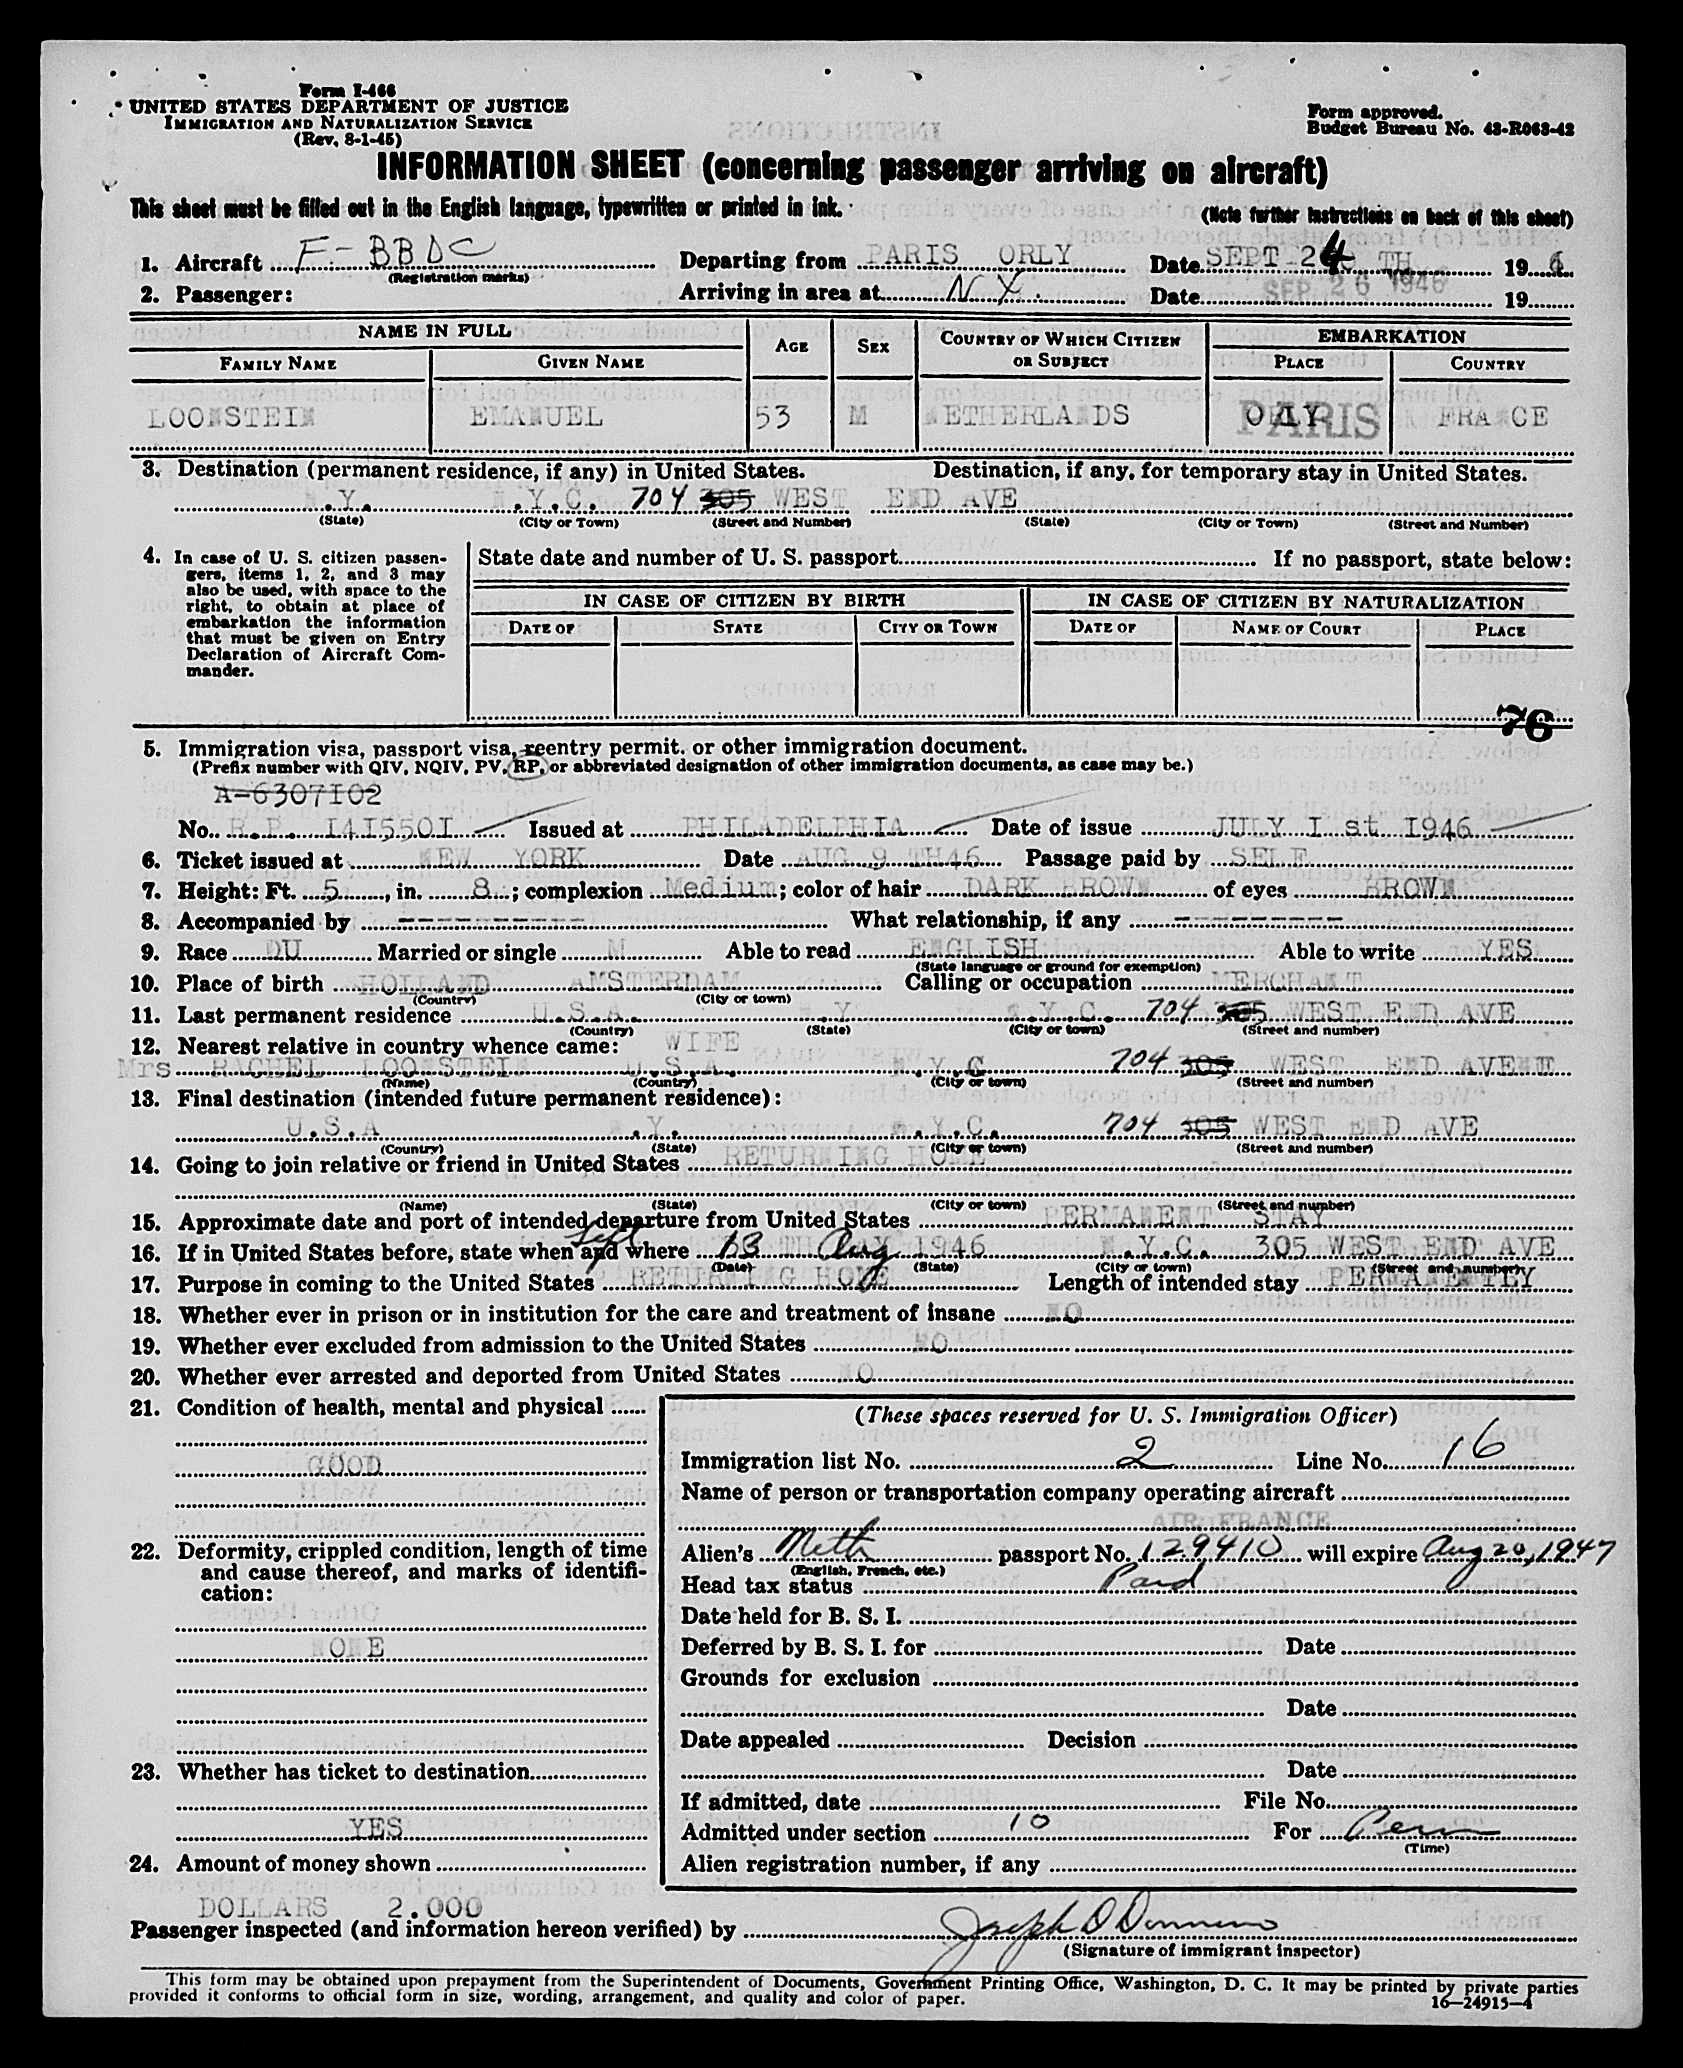 Form I-466
UNITED STATES DEPARTMENT OF JUSTICE
IMMIGRATION AND NATURALIZATION SERVICE
(Rev. 8-1-45)
Form approved.
Budget Bureau No. 43-R063-42
INFORMATION SHEET (concerning passenger arriving on aircraft)
This sheet must be filled out in the English language, typewritten or printed in ink.
(Note further instructions on back of this sheet)
1. Aircraft F-BBDC Departing from PARIS ORLY Date SEPT 24 TH 19 6
(Registration marks)
2. Passenger: Arriving in area at N.Y. Date SEP 26 1946 19
NAME IN FULL AGE SEX COUNTRY OF WHICH CITIZEN OR SUBJECT EMBARKATION
FAMILY NAME GIVEN NAME PLACE COUNTRY
LOONSTEIN EMANUEL 53 M NETHERLANDS PARIS FRANCE
3. Destination (permanent residence, if any) in United States. Destination, if any, for temporary stay in United States.
N.Y. N.Y.C. 704 305 WEST END AVE
(State) (City or Town) (Street and Number) (State) (City or Town) (Street and Number)
4. In case of U. S. citizen passengers, items 1, 2, and 3 may also be used, with space to the right, to obtain at place of embarkation the information that must be given on Entry Declaration of Aircraft Commander.
State date and number of U. S. passport If no passport, state below:
IN CASE OF CITIZEN BY BIRTH IN CASE OF CITIZEN BY NATURALIZATION
DATE OF STATE CITY OR TOWN DATE OF NAME OF COURT PLACE
76
5. Immigration visa, passport visa, reentry permit, or other immigration document.
(Prefix number with QIV, NQIV, PV, RP, or abbreviated designation of other immigration documents, as case may be.)
A-6307102
No. R.P. 1415501 Issued at PHILADELPHIA Date of issue JULY 1 st 1946
6. Ticket issued at NEW YORK Date AUG 9 TH46 Passage paid by SELF
7. Height: Ft. 5, in. 8; complexion Medium; color of hair DARK BROWN of eyes BROWN
8. Accompanied by ---------- What relationship, if any ---------
9. Race DU Married or single M Able to read ENGLISH Able to write YES
(State language or ground for exemption)
10. Place of birth HOLLAND AMSTERDAM Calling or occupation MERCHANT
(Country) (City or town)
11. Last permanent residence U.S.A. N.Y N.Y.C. 704 305 WEST END AVE
(Country) (State) (City or town) (Street and number)
12. Nearest relative in country whence came: WIFE
Mrs RACHEL LOONSTEIN U.S.A. N.Y.C 704 305 WEST END AVENUE
(Name) (Country) (City or town) (Street and number)
13. Final destination (intended future permanent residence):
U.S.A N.Y. N.Y.C. 704 305 WEST END AVE
(Country) (State) (City or town) (Street and number)
14. Going to join relative or friend in United States RETURNING HOME
(Name) (State) (City or town) (Street and number)
15. Approximate date and port of intended departure from United States PERMANENT STAY
16. If in United States before, state when and where 13 TH Aug 1946 N.Y.C. 305 WEST END AVE
(Date) (State) (City or town) (Street and number)
17. Purpose in coming to the United States RETURNING HOME Length of intended stay PERMANENTLY
18. Whether ever in prison or in institution for the care and treatment of insane NO
19. Whether ever excluded from admission to the United States NO
20. Whether ever arrested and deported from United States NO
21. Condition of health, mental and physical
GOOD
22. Deformity, crippled condition, length of time and cause thereof, and marks of identification:
NONE
23. Whether has ticket to destination
YES
24. Amount of money shown
DOLLARS 2.000
(These spaces reserved for U. S. Immigration Officer)
Immigration list No. 2 Line No. 16
Name of person or transportation company operating aircraft
AIR FRANCE
Alien's Neth passport No. 129410 will expire Aug 20, 1947
(English, French, etc.)
Head tax status Paid
Date held for B. S. I.
Deferred by B. S. I. for Date
Grounds for exclusion
Date
Date appealed Decision
Date
If admitted, date File No.
Admitted under section 10 For Perm
(Time)
Alien registration number, if any
Passenger inspected (and information hereon verified) by Joseph
(Signature of immigrant inspector)
This form may be obtained upon prepayment from the Superintendent of Documents, Government Printing Office, Washington, D. C. It may be printed by private parties
provided it conforms to official form in size, wording, arrangement, and quality and color of paper.
16—24915-4